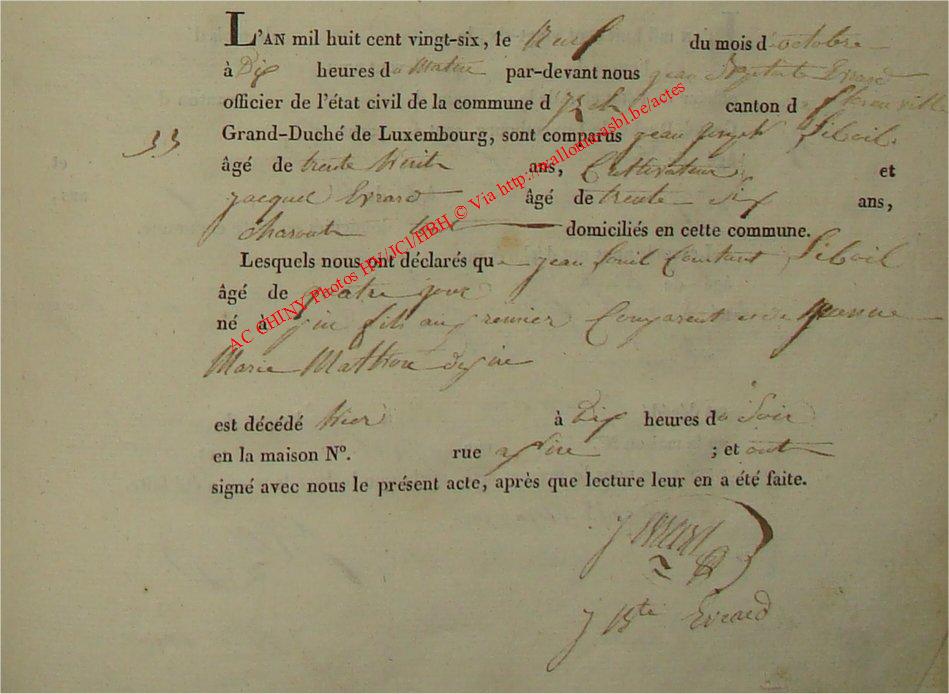 L'AN mil huit cent vingt-six, le neuf du mois d'octobre
à Dix heures du Matin par-devant nous jean Evrard
officier de l'état civil de la commune d canton d
33 Grand-Duché de Luxembourg, sont comparus jean joseph
âgé de trente huit ans, Cultivateur et
jacque Evrard âgé de trente six ans,
domiciliés en cette commune.
Lesquels nous ont déclarés que jean Constant
âgé de quatre jour
né à fils au premier Comparent et de jeanne
Marie
est décédé hier à Dix heures du Soir
en la maison N°. rue ; et ont
signé avec nous le présent acte, après que lecture leur en a été faite.
AC CHINY Photos HV/JCl/HBH © Via http://wallonica.asbl.be/actes
J Evrard
J Bte Evrard